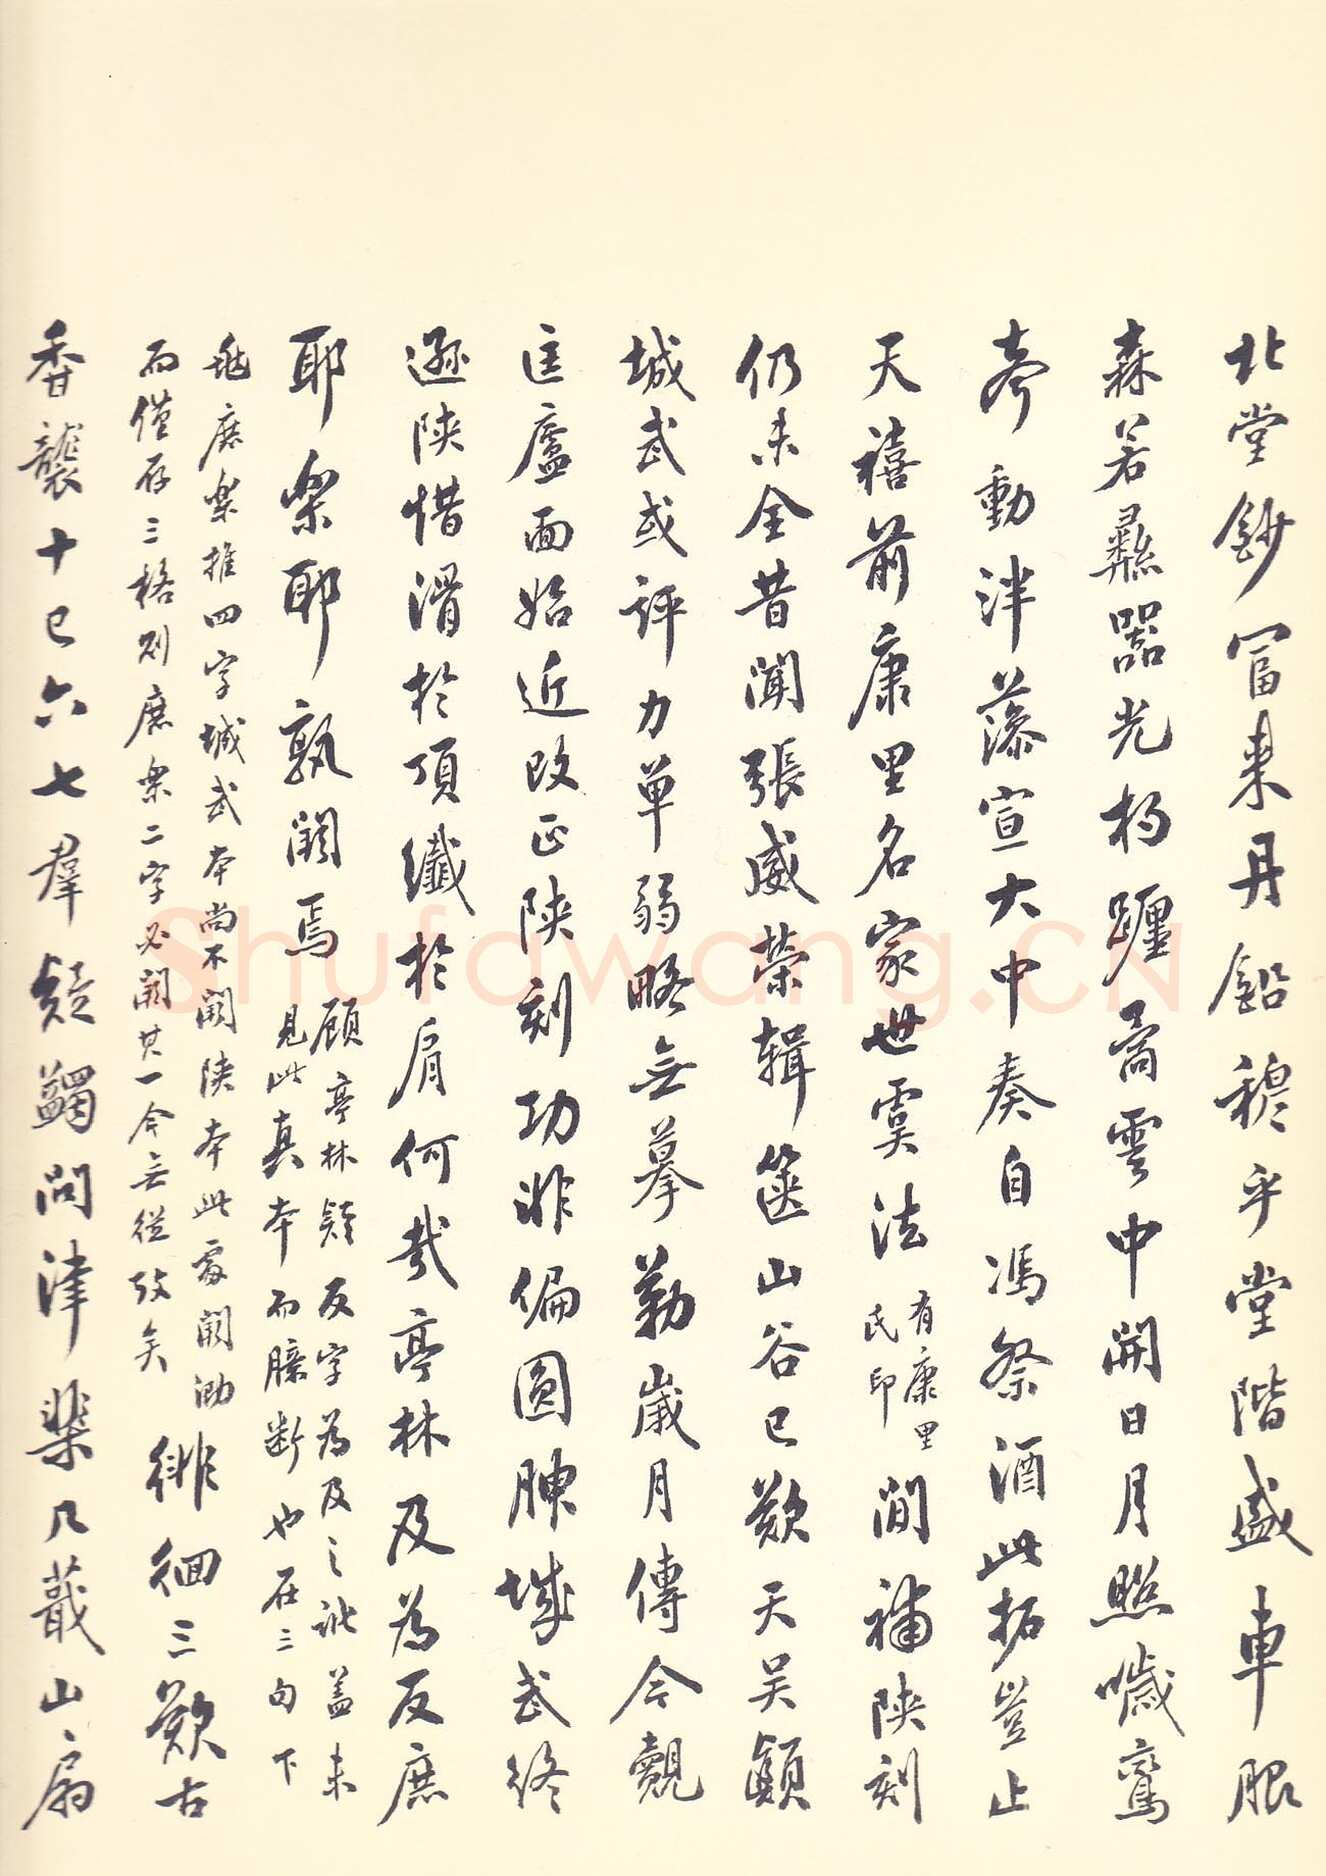 北堂鈔冨來丹鉛穆乎堂階盛車服
森若彞器光杓躔矞雲中開日月照噦鸞
奔動泮藻宣大中奏自馮祭酒此拓豈止
天禧前康里名家世寞法有康里氏印間補陝刻
仍未全昔聞張威榮輯篋山谷已歎天吴顛
城武或評力單弱略無摹勒歲月傳今覩
匡廬面始近改正陝刻功非偏圓腴城武終
遜陝惜滑於頂纖於肩何哉亭林及為反庶
耶樂耶孰闕焉顧亭林疑反字為及之訛蓋未
見此真本而臆斷也在三句下
虺庶樂推四字城武本尚不闕陝本此處闕泐
而僅存三格則庶樂二字必闕其一今無從攷矣徘徊三歎古
香襲十已六七羣疑蠲問津棐几蕺山扇
Shufawang.CN